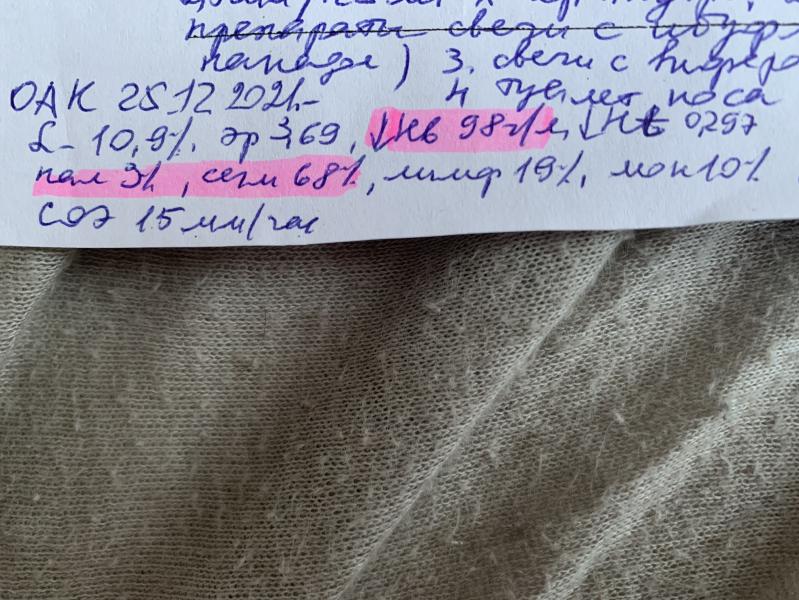 препараты свечи с ибуф
панадол) 3. свечи с
ОАК 25.12 2021.- 4 туалет носа
L- 10,9%. эр 3,69, ↓Нв 98г/л, ↓Ht 0,297
пал 3%, сегм 68%, лимф 19%, мон 10%
СОЭ 15 мм/час